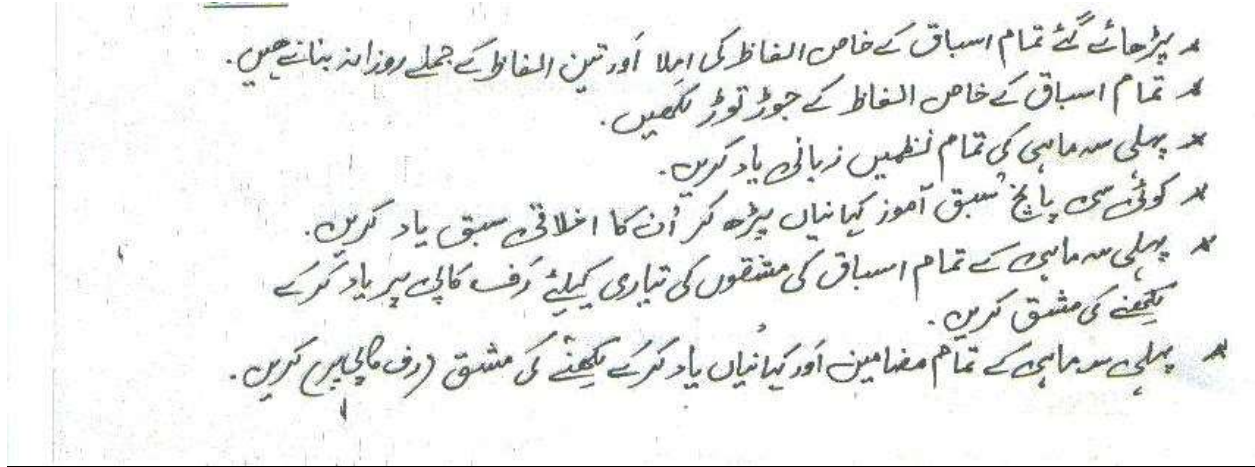 * پڑھائے گئے تمام اسباق کے خاص الفاظ کی اِملا اَور تین الفاظ کے جملے روزانہ بنانے ہیں۔
* تمام اسباق کے خاص الفاظ کے جوڑ توڑ لکھیں۔
* پہلی سہ ماہی کی تمام نظمیں زبانی یاد کریں۔
* کوئی سی پانچ سبق آموز کہانیاں پڑھ کر اُن کا اخلاقی سبق یاد کریں۔
* پہلی سہ ماہی کے تمام اسباق کی مشقوں کی تیاری کیلئے رَف کاپی پر یاد کرکے
لکھنے کی مشق کریں۔
* پہلی سہ ماہی کے تمام مضامین اَور کہانیاں یاد کرکے لکھنے کی مشق (رف کاپی پر) کریں۔